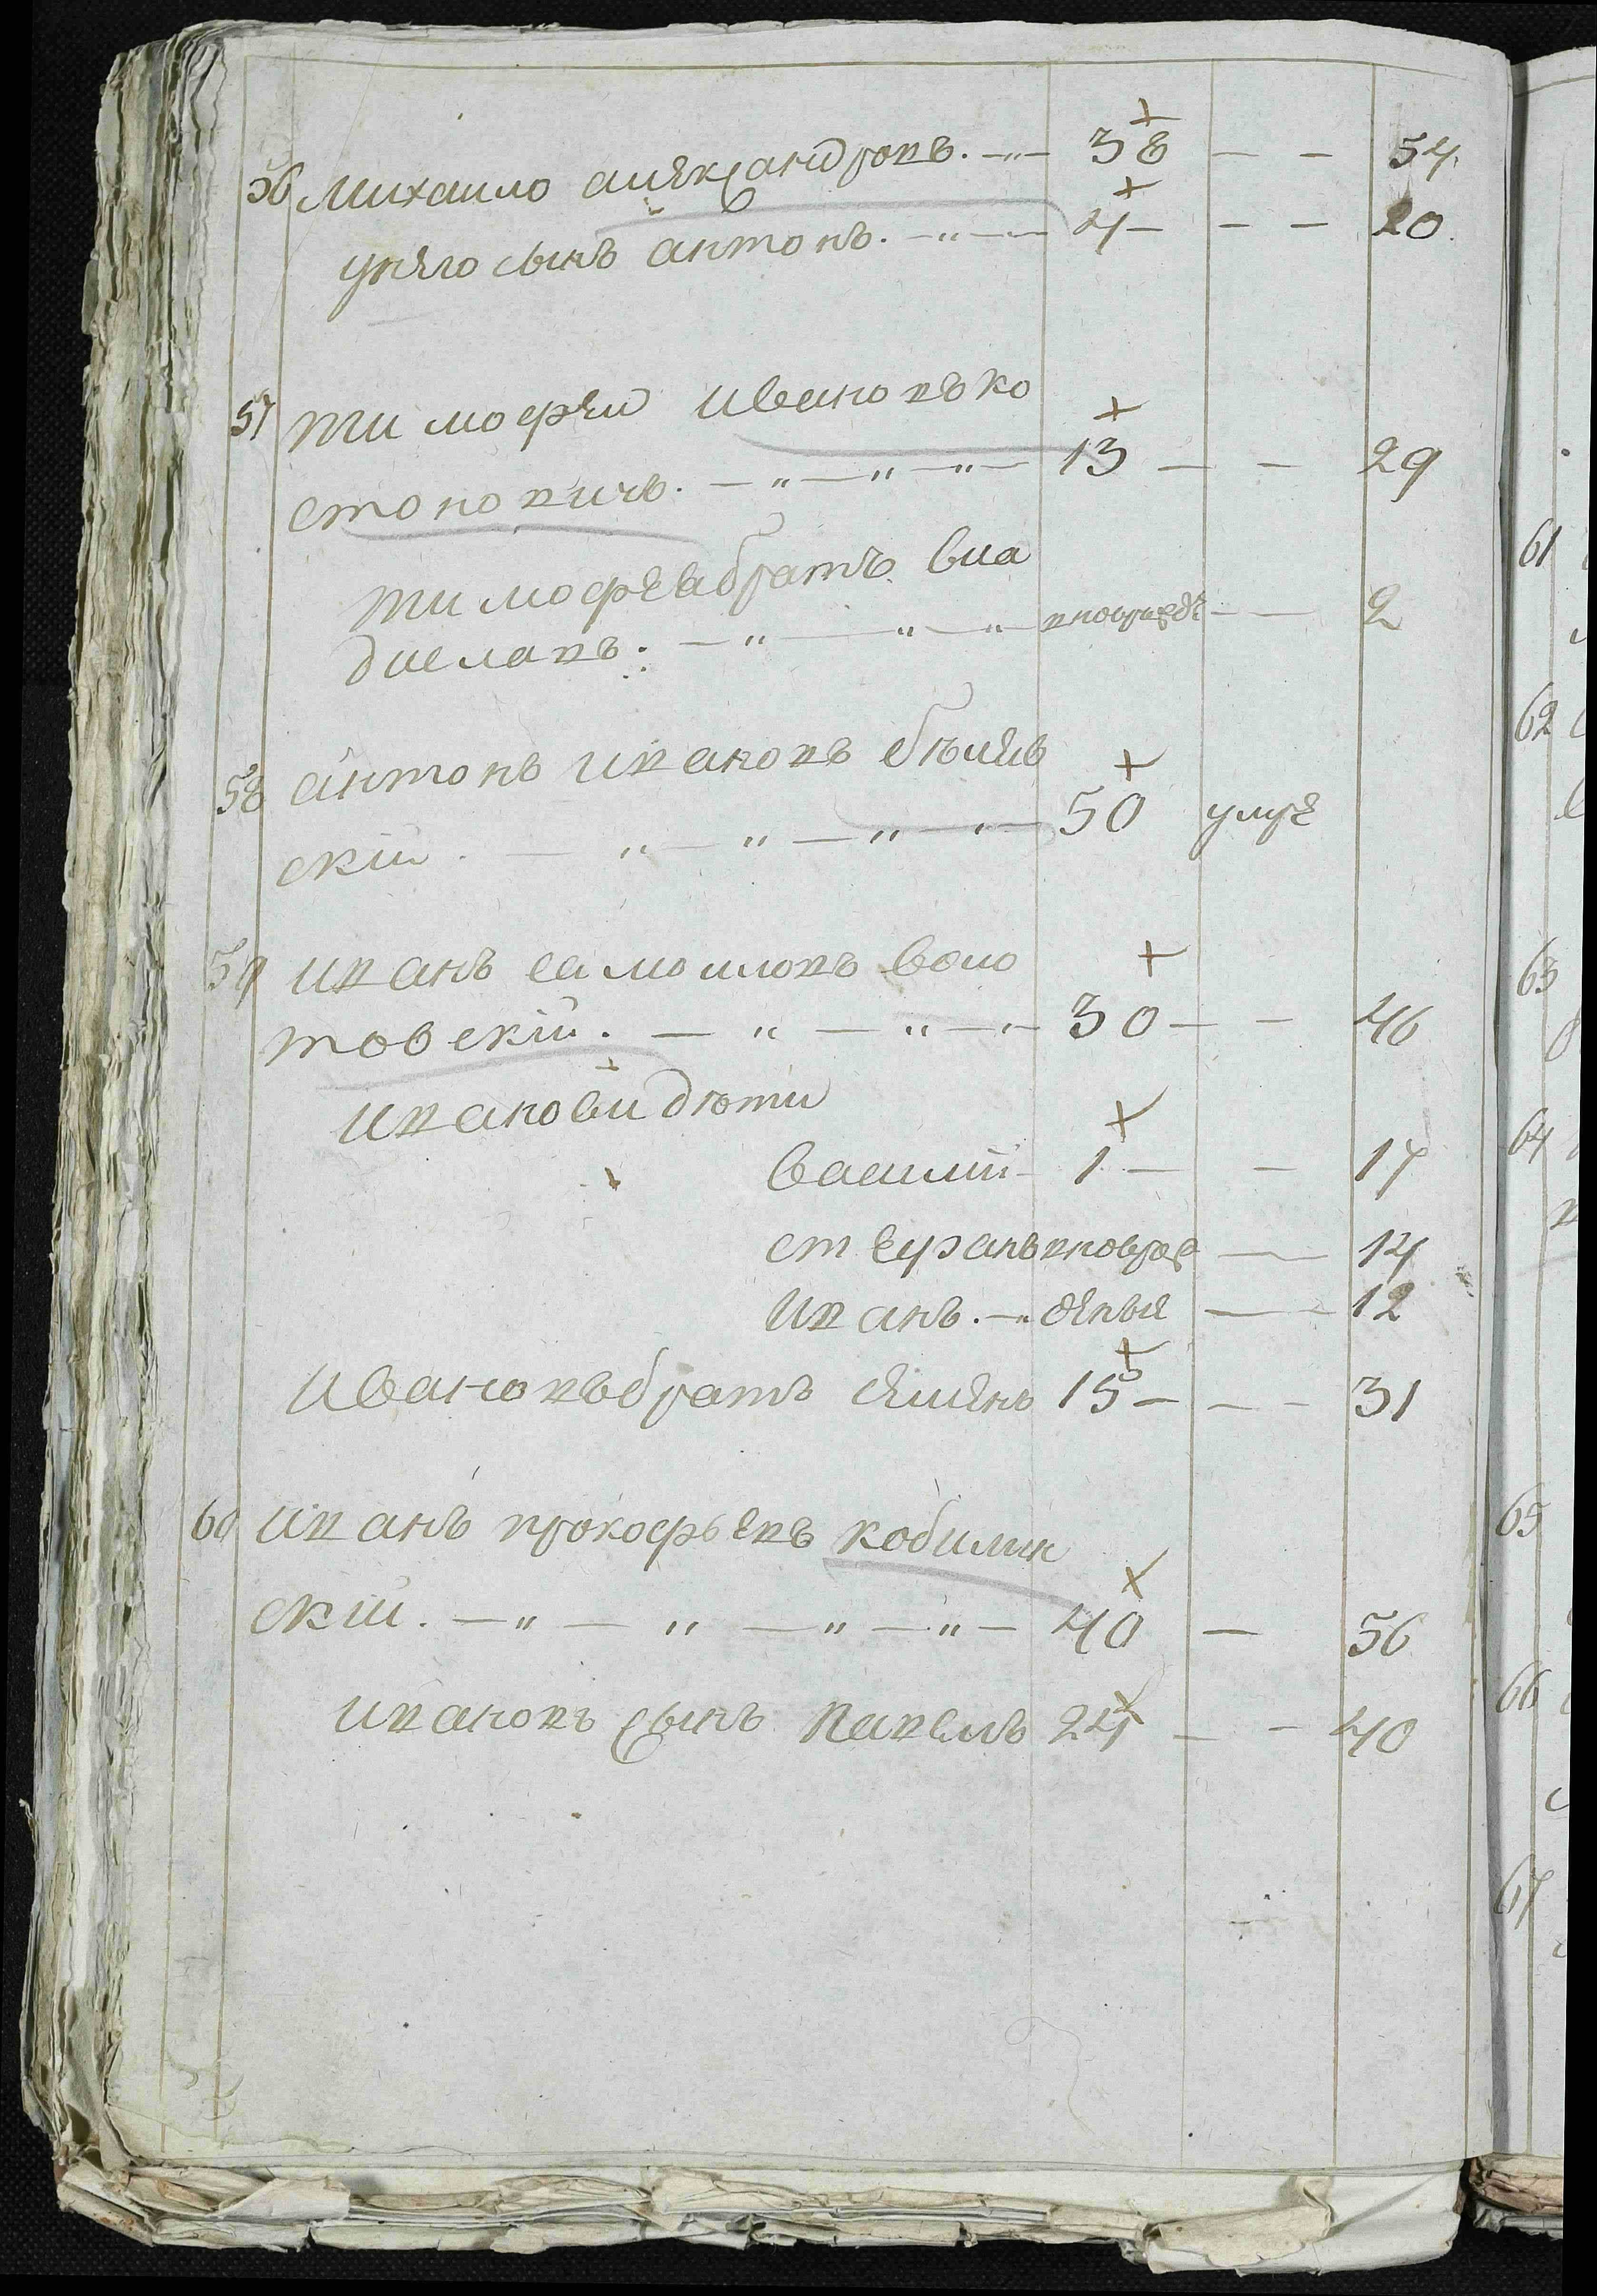 56 Михаило александровъ. 38 — — 54
унего сынъ антонъ. 4 — — — 20
57 тимофеи Ивановъ ко
стоновичъ. 13 — — 29
тимофеевбратъ вла
диславъ. вновьрожд — — 2
58 антонъ Ивановъ
скій. 50 умре
59 Иванъ самоиловъ воло
товскій. 30 — — 46
Ивановы дѣти
василій 1 — — 17
степанъ вновьрож — 14
Иванъ. — 12
Ивановъбратъ семенъ 15 — — — 31
60 Иванъ прокофьевъ кобилин
скій. 40 — 56
Ивановъ сынъ павелъ 24 — — 40
61
62
63
64
65
66
67